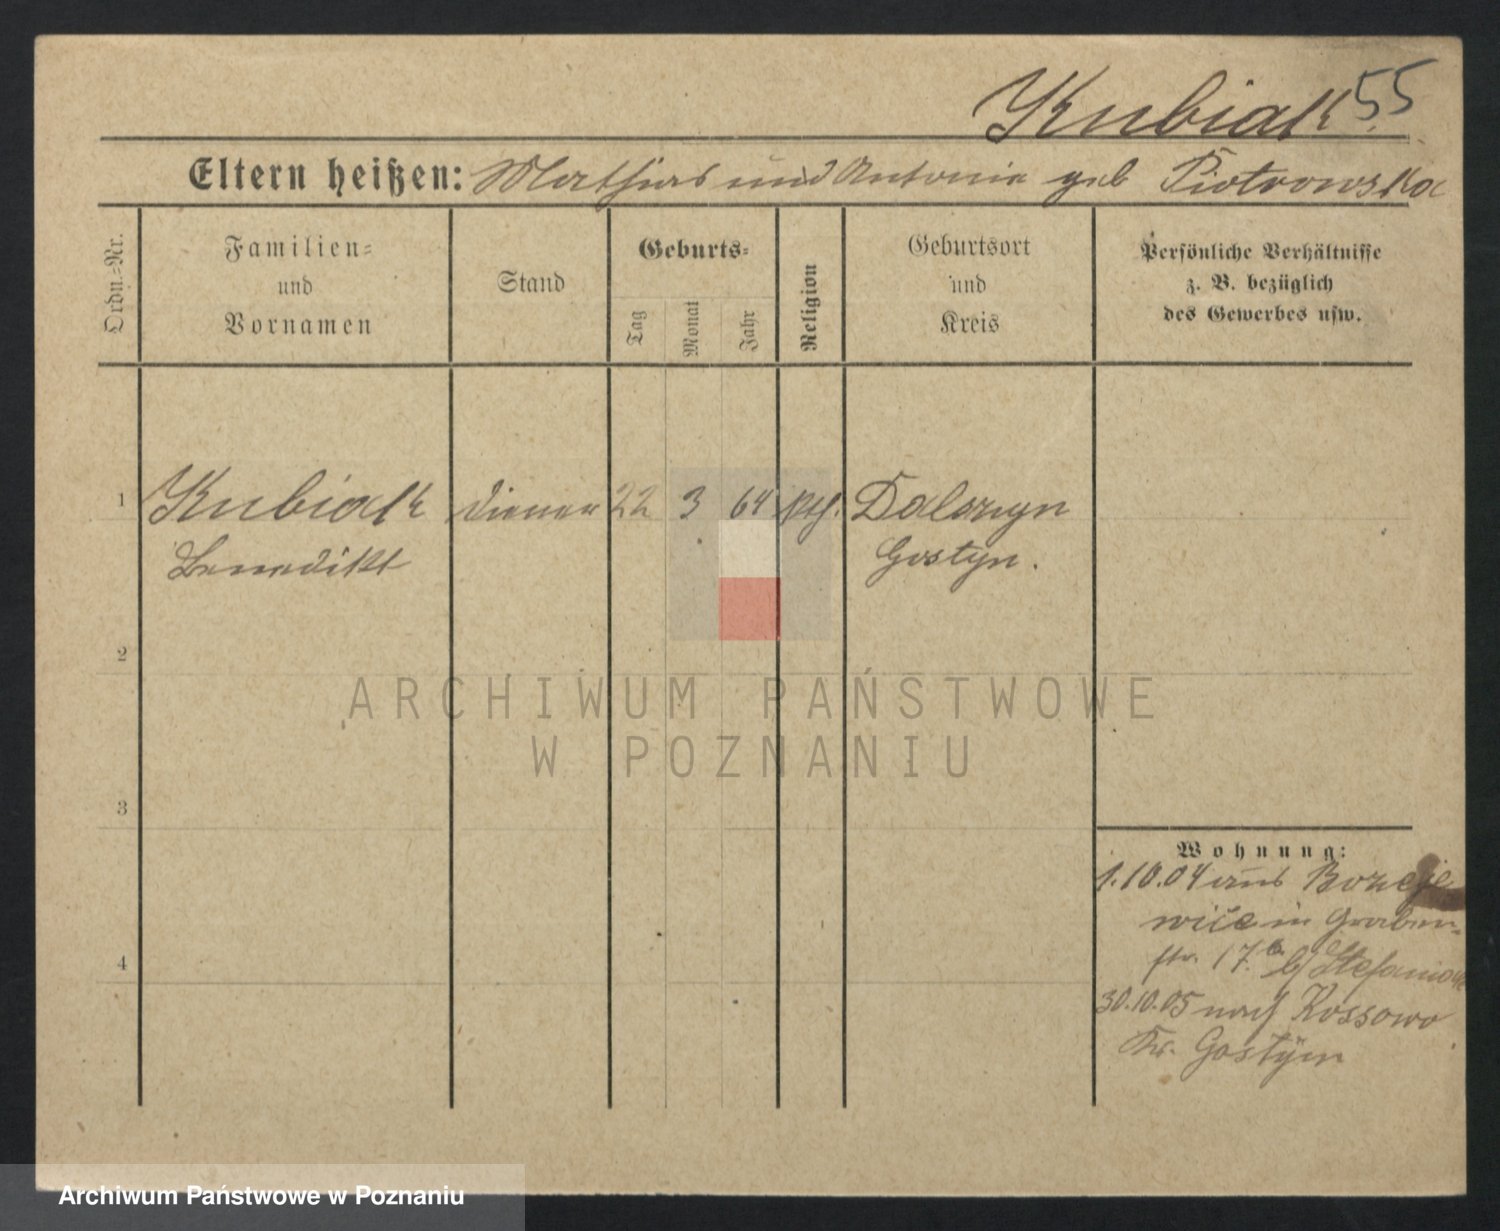 Kubiak 55
Eltern heißen: Mathias und Antonie geb Piotrowska
Ordn.=Nr.
Familien=
und
Vornamen
Stand
Geburts=
Tag
Monat
Jahr
Religion
Geburtsort
und
Kreis
Persönliche Verhältnisse
z. B. bezüglich
des Gewerbes usw.
1 Kubiak Diener 22 3 64 kth. Dalszyn
Benedikt Gostyn.
2
ARCHIWUM PAŃSTWOWE
W POZNANIU
3
Wohnung:
1.10.04 aus
in Graben=
str. 17.b b/
4
30.10.05 nach Kossowo
Kr. Gostÿn
Archiwum Państwowe w Poznaniu